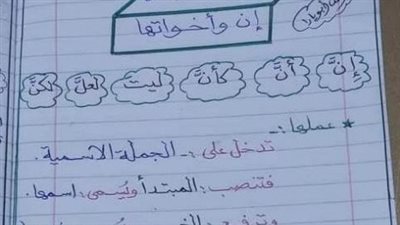 إن وأخواتها
إنَّ أنَّ كأنَّ ليت لعلَّ لكنَّ
* عملها :-
تدخل على :- الجملة الاسمية.
فتنصب : المبتدأ ويُسمى : اسمها.
وترفع : الخبر